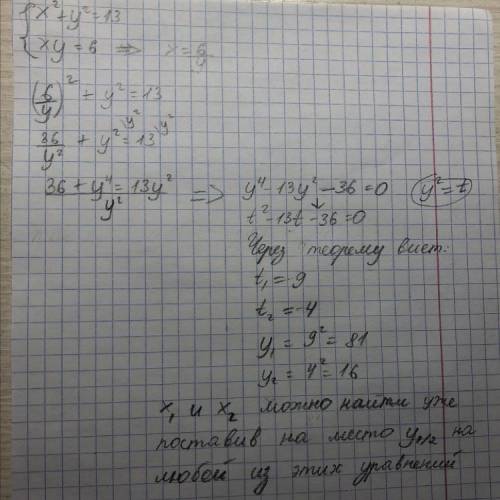 {x²+y²=13
{xy=6 ⇒ x=6/y
(6/y)² + y² = 13
36/y² + y²\y² = 13\y²
36+y⁴ = 13y² / y² => y⁴-13y²-36=0 (y²=t)
t²-13t-36=0
Через теорему виет:
t₁=-9
t₂=-4
y₁ = 9² = 81
y₂ = 4² = 16
x₁ и x₂ можно найти уже
поставив на место y₁/₂ на
любой из этих уравнений